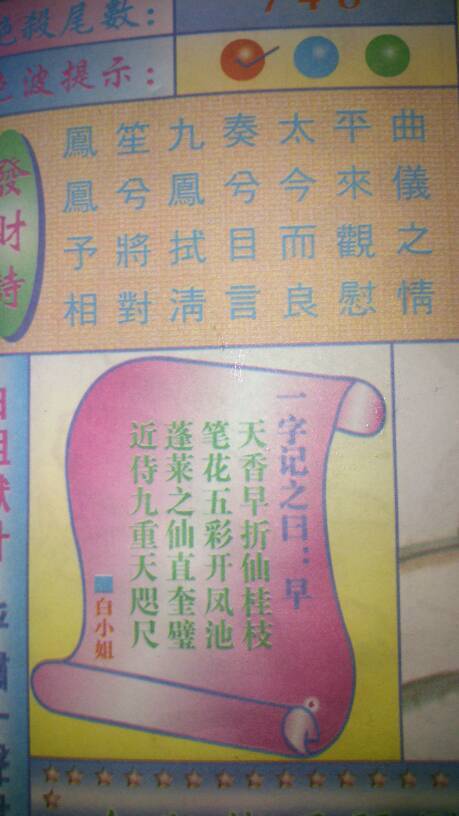 絕殺尾數：
色波提示：
發財詩
鳳笙九奏太平曲
鳳兮鳳兮今來儀
予將拭目而觀之
相對清言良慰情
一字记之曰：早
天香早折仙桂枝
笔花五彩开凤池
蓬莱之仙直奎璧
近侍九重天咫尺
白小姐